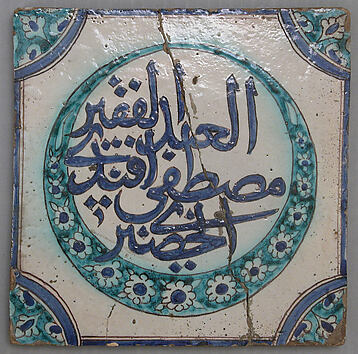 العبد الفقير
مصطفى افندي
الخضري